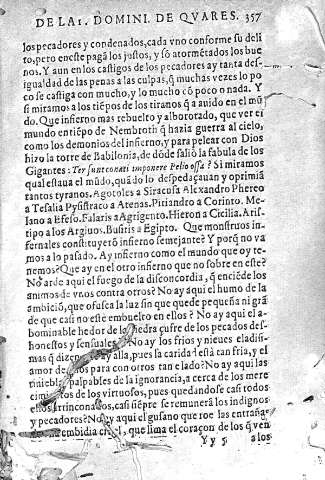 DE LA 1. DOMINI. DE QVARES. 357
los pecadores y condenados, cada vno conforme su deli
to, pero en este pagã los justos, y sõ atormẽtados los bue
nos. Y aun en los castigos de los pecadores ay tanta desi-
gualdad de las penas a las culpas, q̃ muchas vezes lo po
co se castiga con mucho, y lo mucho cõ poco o nada. Y
si miramos a los tiẽpos de los tiranos q̃ a auido en el mũ
do. Que infierno mas rebuelto y alborotado, que ver el
mundo entiẽpo de Nembroth q̃ hazia guerra al cielo,
como los demonios del infierno, y para pelear con Dios
hizo la torre de Babilonia, de dõde salio la fabula de los
Gigantes: Ter sunt conati imponere Pelio ossa? Si miramos
qual estaua el mũdo, quãdo lo despedaçauan y oprimiã
tantos tyranos. Agotoles a Siracusa Alexandro Phereo
a Tesalia Pysistraco a Atenas. Pitiandro a Corinto. Me-
lano a Efeso. Falaris a Agrigento. Hieron a Cicilia. Aris-
tipo a los Argiuos. Busiris a Egipto. Que monstruos in-
fernales constituyerõ infierno semejante? Y porq̃ no va
mos a lo pasado. Ay infierno como el mundo que oy te-
nemos? Que ay en el otro infierno que no sobre en este?
No arde aqui el fuego de la discordia, q̃ enciẽde los
animos de vnos contra otros? No ay aqui el humo de la
ambiciõ, que ofusca la luz sin que quede pequeña ni grã
de que casi no estè embuelto en ellos? No ay aqui el a-
bominable hedor de la piedra çufre de los pecados des-
honestos y sensuales? No ay los frios y nieues eladis-
mas q̃ dizen ay alla, pues la caridad està tan fria, y el
amor de vnos para con otros tan elado? No ay aqui las
tinieblas palpables de la ignorancia, a cerca de los mere
cimientos de los virtuosos, pues quedandose casi todos
ellos arrinconados, casi siẽpre se remunerã los indignos
y pecadores? No ay aqui el gusano que roe las entrañas
la embidia cruel, que lima el coraçon de los q̃ ven
Yy 5 a los